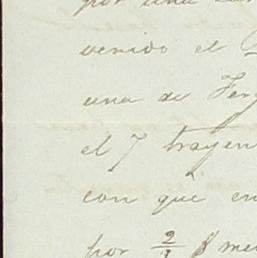 por una
venido el
una de
el 7 trayen
con que en
por 2/1 $ me